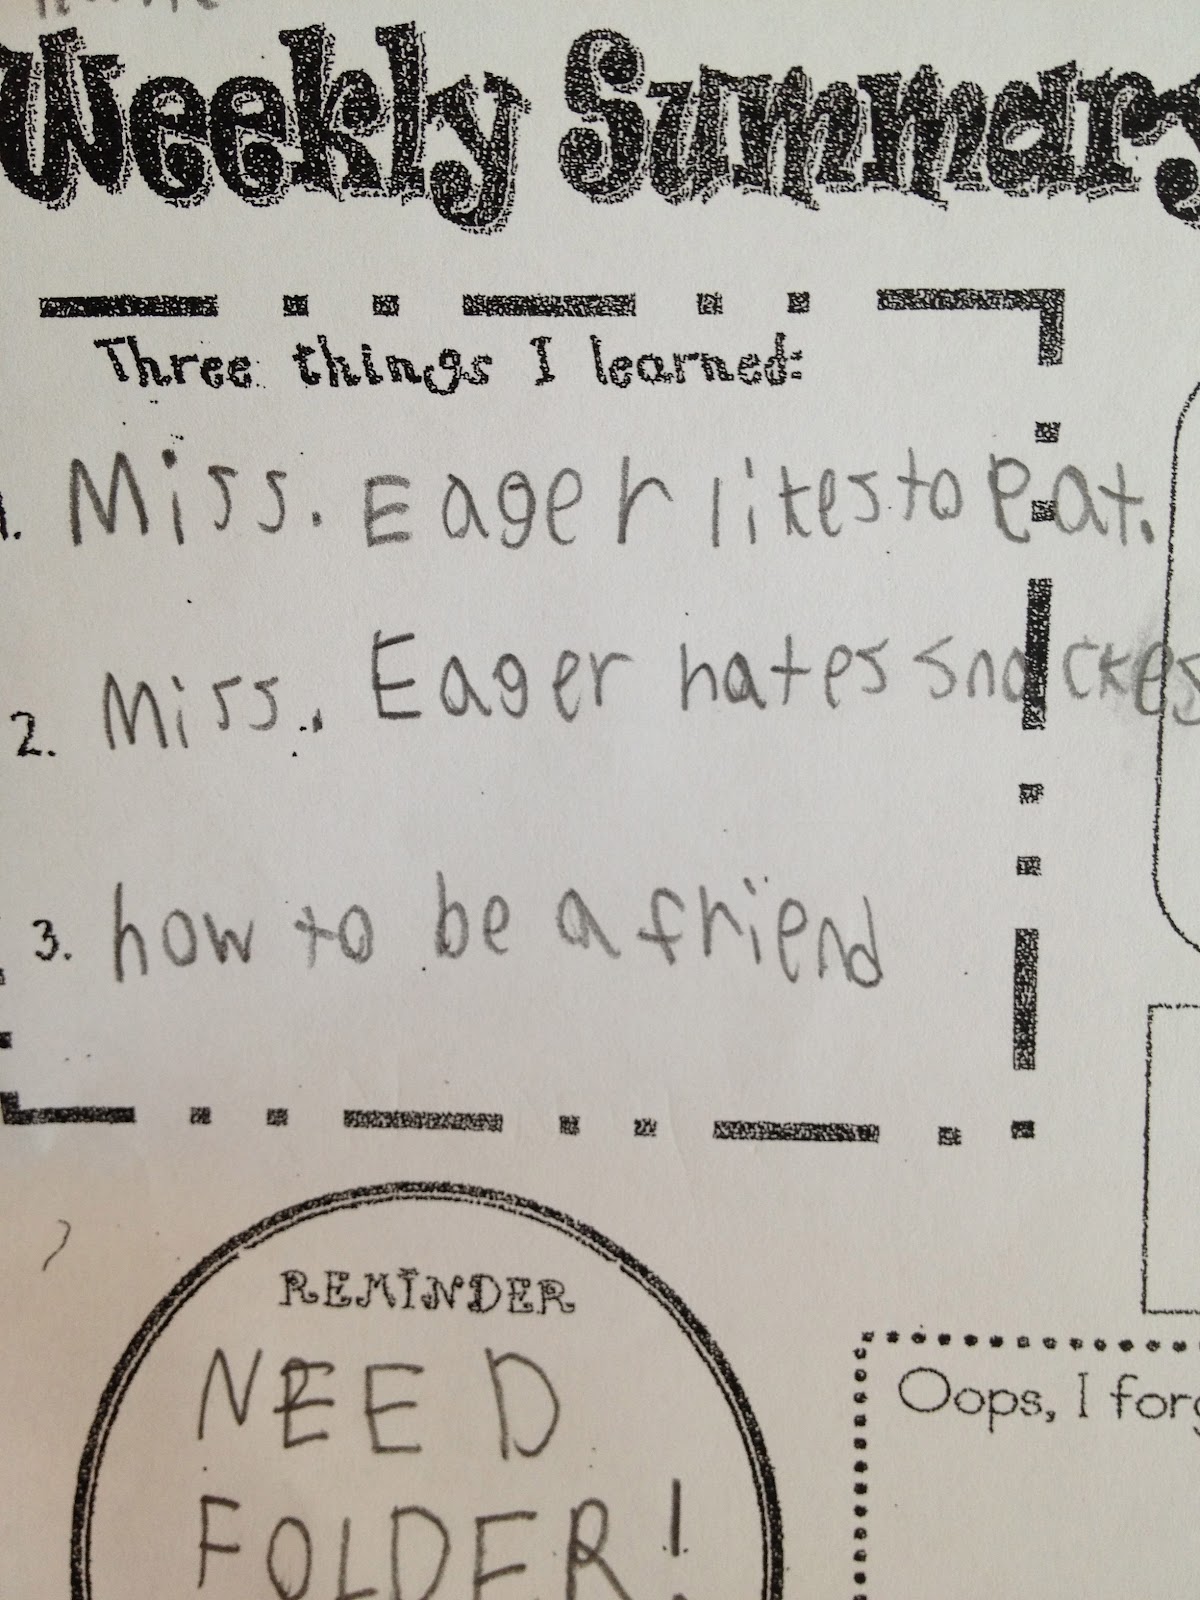 Weekly Summary
Three things I learned:
1. Miss. Eager likes to eat.
2. Miss. Eager hates snackes
3. how to be a friend
REMINDER
NEED
FOLDER!
Oops, I forg